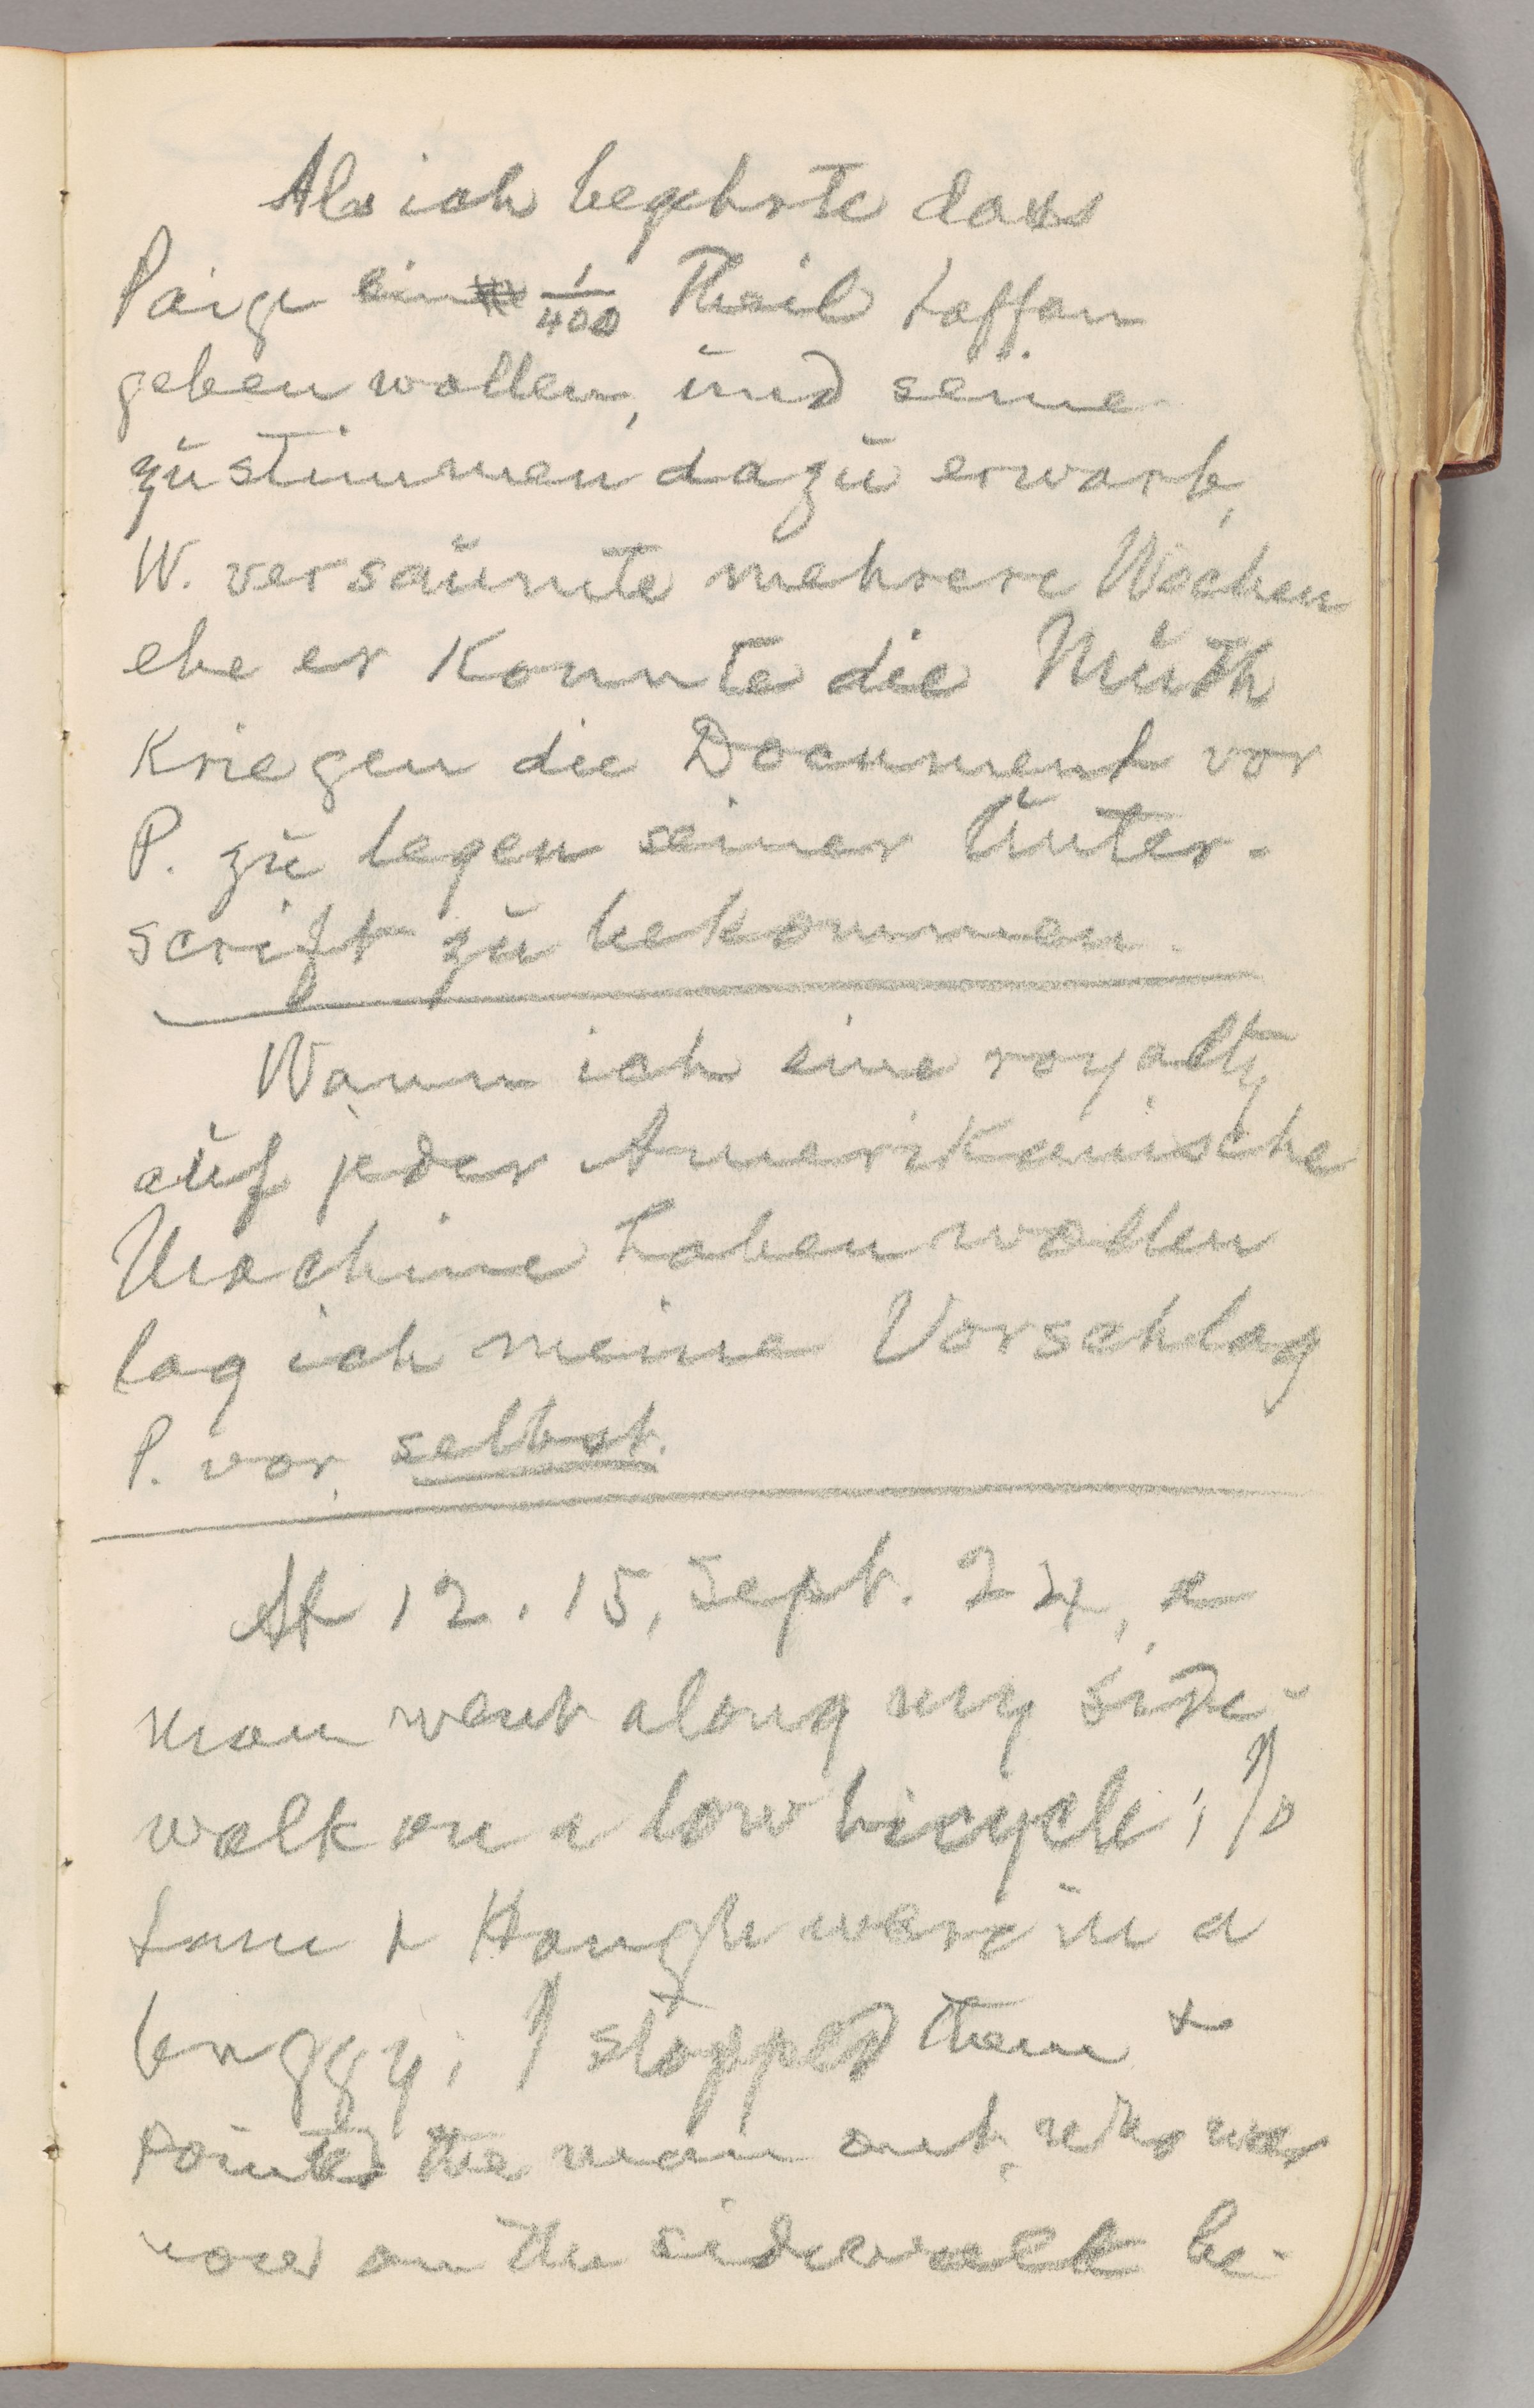 Als ich begehrte dass
Paige ein 1/400 Theil Laffan
geben wollen, und seine
zustimmen dazu erwarb,
W. versäumte mehrere Wochen
ehe er konnte die Muth
kriegen die Document vor
P. zu legen seiner Unter-
scrift zu bekommen.
Wann ich eine royalty
auf jeder Amerikanische
Machine haben wollen
lag ich meine Vorschlag
P. vor selbst.
At 12.15, Sept. 24, a
man went along my side-
walk on a low bicycle;
& Hough were in a
buggy; I stopped them &
pointed the man out, who was
now on the sidewalk be-